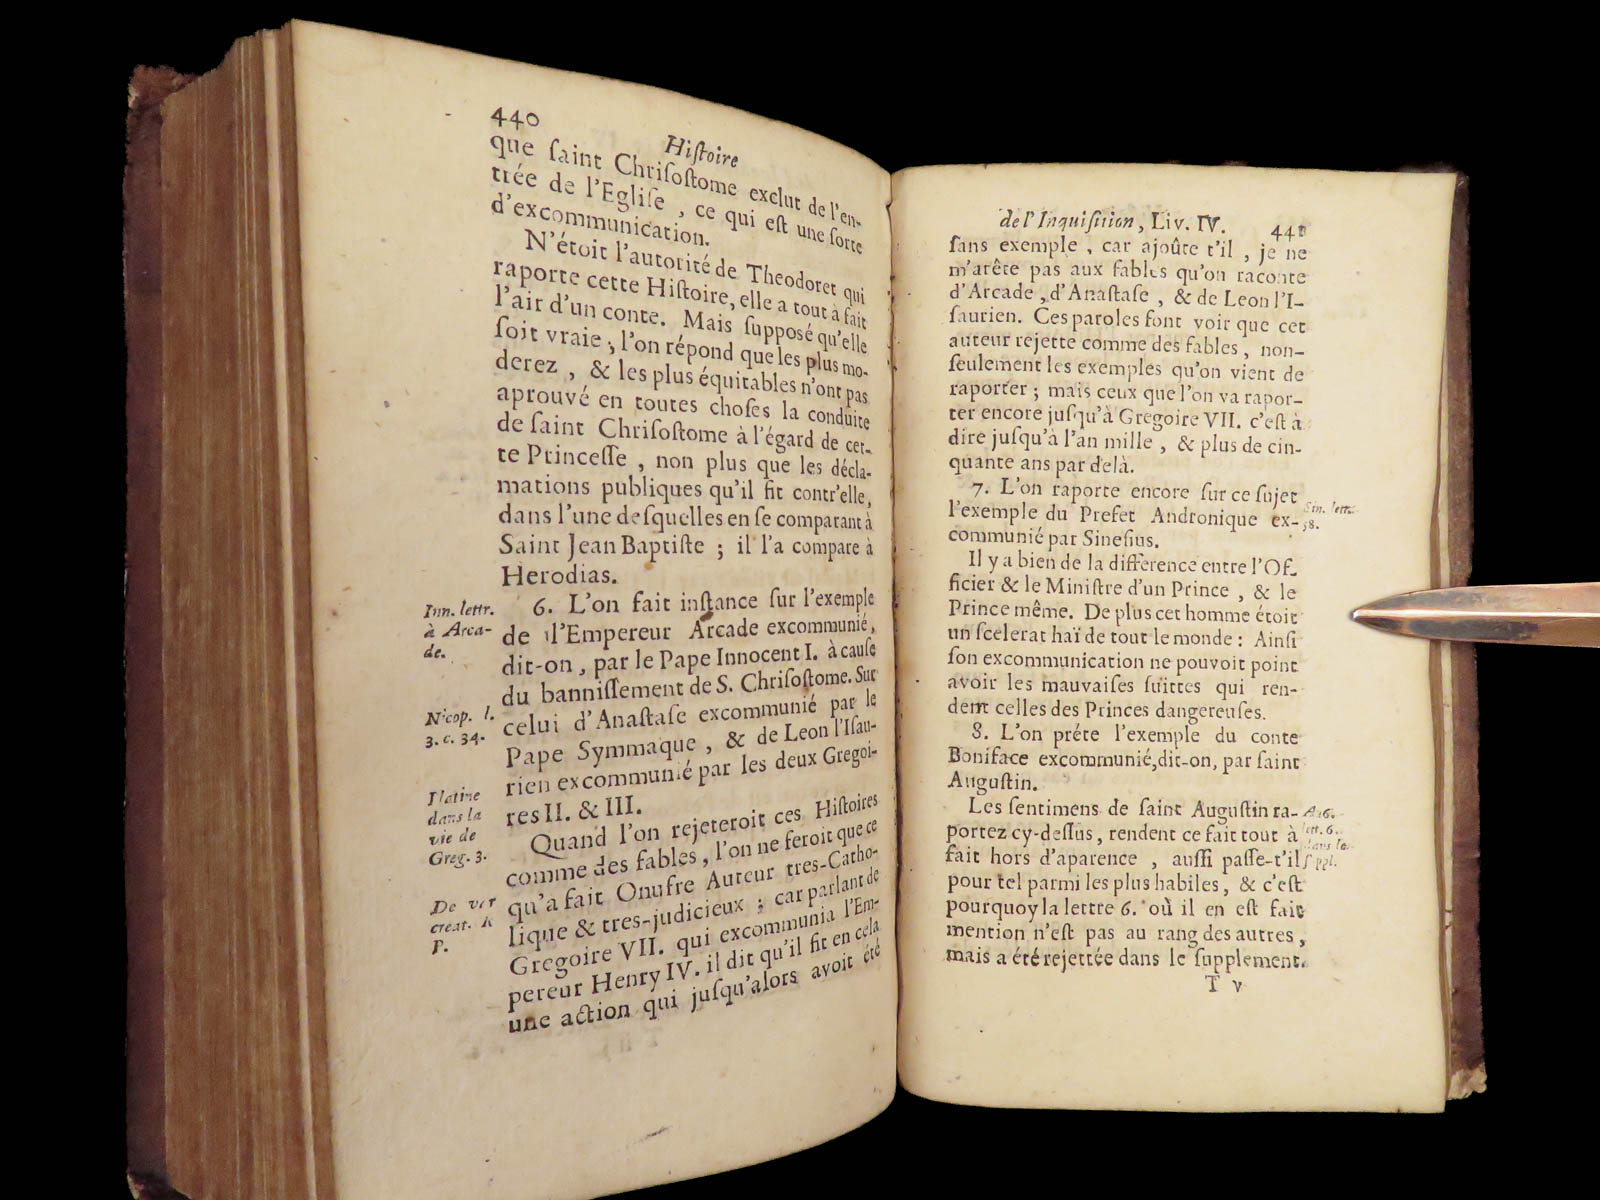 440
Hiſtoire
que ſaint Chriſoſtome exclut de l'en-
trée de l'Egliſe, ce qui eſt une ſorte
d'excommunication.
N'étoit l'autorité de Theodoret qui
raporte cette Hiſtoire, elle a tout à fait
l'air d'un conte. Mais ſuppoſé qu'elle
ſoit vraie; l'on répond que les plus mo-
derez, & les plus équitables n'ont pas
aprouvé en toutes choſes la conduite
de ſaint Chriſoſtome à l'égard de cet-
te Princeſſe, non plus que les décla-
mations publiques qu'il fit contr'elle,
dans l'une deſquelles en ſe comparant à
Saint Jean Baptiſte; il l'a compare à
Herodias.
Inn. lettr.
à Arca-
de.
6. L'on fait inſtance ſur l'exemple
de l'Empereur Arcade excommunié,
dit-on, par le Pape Innocent I. à cauſe
du banniſſement de S. Chriſoſtome. Sur
Nicop. l.
3. c. 34.
celui d'Anaſtaſe excommunié par le
Pape Symmaque, & de Leon l'Iſau-
rien excommunié par les deux Gregoi-
res II. & III.
Platine
dans la
vie de
Greg. 3.
Quand l'on rejeteroit ces Hiſtoires
comme des fables, l'on ne feroit que ce
qu'a fait Onufre Auteur tres-Catho-
lique & tres-judicieux; car parlant de
De
creat. R
P.
Gregoire VII. qui excommunia l'Em-
pereur Henry IV. il dit qu'il fit en cela
une action qui juſqu'alors avoit été
de l'Inquiſition, Liv. IV.
441
ſans exemple, car ajoûte t'il, je ne
m'arête pas aux fables qu'on raconte
d'Arcade, d'Anaſtaſe, & de Leon l'I-
ſaurien. Ces paroles font voir que cet
auteur rejette comme des fables, non-
ſeulement les exemples qu'on vient de
raporter; mais ceux que l'on va rapor-
ter encore juſqu'à Gregoire VII. c'eſt à
dire juſqu'à l'an mille, & plus de cin-
quante ans par delà.
7. L'on raporte encore ſur ce ſujet
l'exemple du Prefet Andronique ex-
communié par Sineſius.
Sin. lettr.
58.
Il y a bien de la difference entre l'Of-
ficier & le Miniſtre d'un Prince, & le
Prince même. De plus cet homme étoit
un ſcelerat haï de tout le monde: Ainſi
ſon excommunication ne pouvoit point
avoir les mauvaiſes ſuittes qui ren-
dent celles des Princes dangereuſes.
8. L'on préte l'exemple du conte
Boniface excommunié, dit-on, par ſaint
Auguſtin.
Les ſentimens de ſaint Auguſtin ra-
portez cy-deſſus, rendent ce fait tout à
fait hors d'aparence, auſſi paſſe-t'il
pour tel parmi les plus habiles, & c'eſt
pourquoy la lettre 6. où il en eſt fait
mention n'eſt pas au rang des autres,
mais a été rejettée dans le ſupplement.
lett. 6.
dans le
ſuppl.
T v